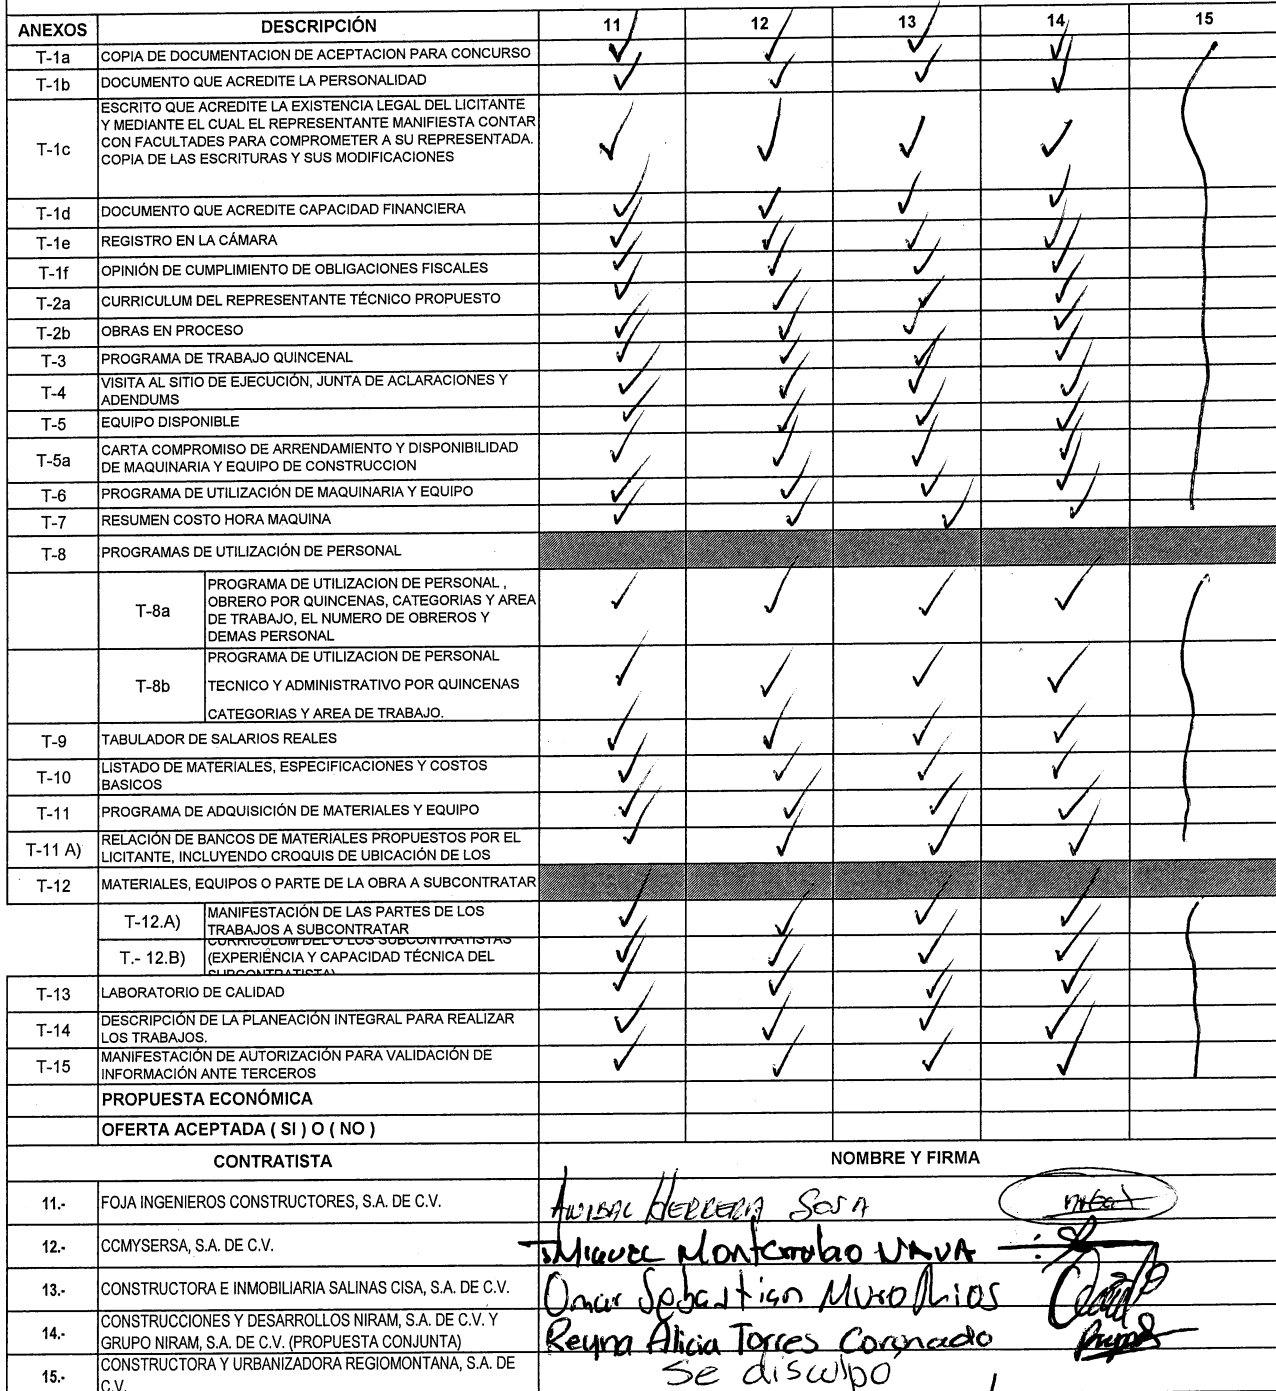 ANEXOS DESCRIPCIÓN 11 12 13 14 15
T-1a COPIA DE DOCUMENTACION DE ACEPTACION PARA CONCURSO ✓ ✓ ✓ ✓
T-1b DOCUMENTO QUE ACREDITE LA PERSONALIDAD ✓ ✓ ✓ ✓
ESCRITO QUE ACREDITE LA EXISTENCIA LEGAL DEL LICITANTE
Y MEDIANTE EL CUAL EL REPRESENTANTE MANIFIESTA CONTAR
T-1c CON FACULTADES PARA COMPROMETER A SU REPRESENTADA. ✓ ✓ ✓ ✓
COPIA DE LAS ESCRITURAS Y SUS MODIFICACIONES
T-1d DOCUMENTO QUE ACREDITE CAPACIDAD FINANCIERA ✓ ✓ ✓ ✓
T-1e REGISTRO EN LA CÁMARA ✓ ✓ ✓ ✓
T-1f OPINIÓN DE CUMPLIMIENTO DE OBLIGACIONES FISCALES ✓ ✓ ✓ ✓
T-2a CURRICULUM DEL REPRESENTANTE TÉCNICO PROPUESTO ✓ ✓ ✓ ✓
T-2b OBRAS EN PROCESO ✓ ✓ ✓ ✓
T-3 PROGRAMA DE TRABAJO QUINCENAL ✓ ✓ ✓ ✓
T-4 VISITA AL SITIO DE EJECUCIÓN, JUNTA DE ACLARACIONES Y ✓ ✓ ✓ ✓
ADENDUMS
T-5 EQUIPO DISPONIBLE ✓ ✓ ✓ ✓
T-5a CARTA COMPROMISO DE ARRENDAMIENTO Y DISPONIBILIDAD ✓ ✓ ✓ ✓
DE MAQUINARIA Y EQUIPO DE CONSTRUCCION
T-6 PROGRAMA DE UTILIZACIÓN DE MAQUINARIA Y EQUIPO ✓ ✓ ✓ ✓
T-7 RESUMEN COSTO HORA MAQUINA ✓ ✓ ✓ ✓
T-8 PROGRAMAS DE UTILIZACIÓN DE PERSONAL
PROGRAMA DE UTILIZACION DE PERSONAL ,
T-8a OBRERO POR QUINCENAS, CATEGORIAS Y AREA ✓ ✓ ✓ ✓
DE TRABAJO, EL NUMERO DE OBREROS Y
DEMAS PERSONAL
PROGRAMA DE UTILIZACION DE PERSONAL
T-8b TECNICO Y ADMINISTRATIVO POR QUINCENAS ✓ ✓ ✓ ✓
CATEGORIAS Y AREA DE TRABAJO.
T-9 TABULADOR DE SALARIOS REALES ✓ ✓ ✓ ✓
T-10 LISTADO DE MATERIALES, ESPECIFICACIONES Y COSTOS ✓ ✓ ✓ ✓
BASICOS
T-11 PROGRAMA DE ADQUISICIÓN DE MATERIALES Y EQUIPO ✓ ✓ ✓ ✓
T-11 A) RELACIÓN DE BANCOS DE MATERIALES PROPUESTOS POR EL ✓ ✓ ✓ ✓
LICITANTE, INCLUYENDO CROQUIS DE UBICACIÓN DE LOS
T-12 MATERIALES, EQUIPOS O PARTE DE LA OBRA A SUBCONTRATAR
T-12.A) MANIFESTACIÓN DE LAS PARTES DE LOS ✓ ✓ ✓ ✓
TRABAJOS A SUBCONTRATAR
CURRICULUM DEL O LOS SUBCONTRATISTAS
T.- 12.B) (EXPERIENCIA Y CAPACIDAD TÉCNICA DEL ✓ ✓ ✓ ✓
SUBCONTRATISTA)
T-13 LABORATORIO DE CALIDAD ✓ ✓ ✓ ✓
T-14 DESCRIPCIÓN DE LA PLANEACIÓN INTEGRAL PARA REALIZAR ✓ ✓ ✓ ✓
LOS TRABAJOS.
T-15 MANIFESTACIÓN DE AUTORIZACIÓN PARA VALIDACIÓN DE ✓ ✓ ✓ ✓
INFORMACIÓN ANTE TERCEROS
PROPUESTA ECONÓMICA
OFERTA ACEPTADA ( SI ) O ( NO )
CONTRATISTA NOMBRE Y FIRMA
11.- FOJA INGENIEROS CONSTRUCTORES, S.A. DE C.V. ANIBAL HERRERA SOSA
12.- CCMYSERSA, S.A. DE C.V. J. Miguel Montemrubio NAVA
13.- CONSTRUCTORA E INMOBILIARIA SALINAS CISA, S.A. DE C.V. Omar Sebastian Muro Rios
14.- CONSTRUCCIONES Y DESARROLLOS NIRAM, S.A. DE C.V. Y
GRUPO NIRAM, S.A. DE C.V. (PROPUESTA CONJUNTA) Reyna Alicia Torres Coronado
15.- CONSTRUCTORA Y URBANIZADORA REGIOMONTANA, S.A. DE
C.V. Se disculpo